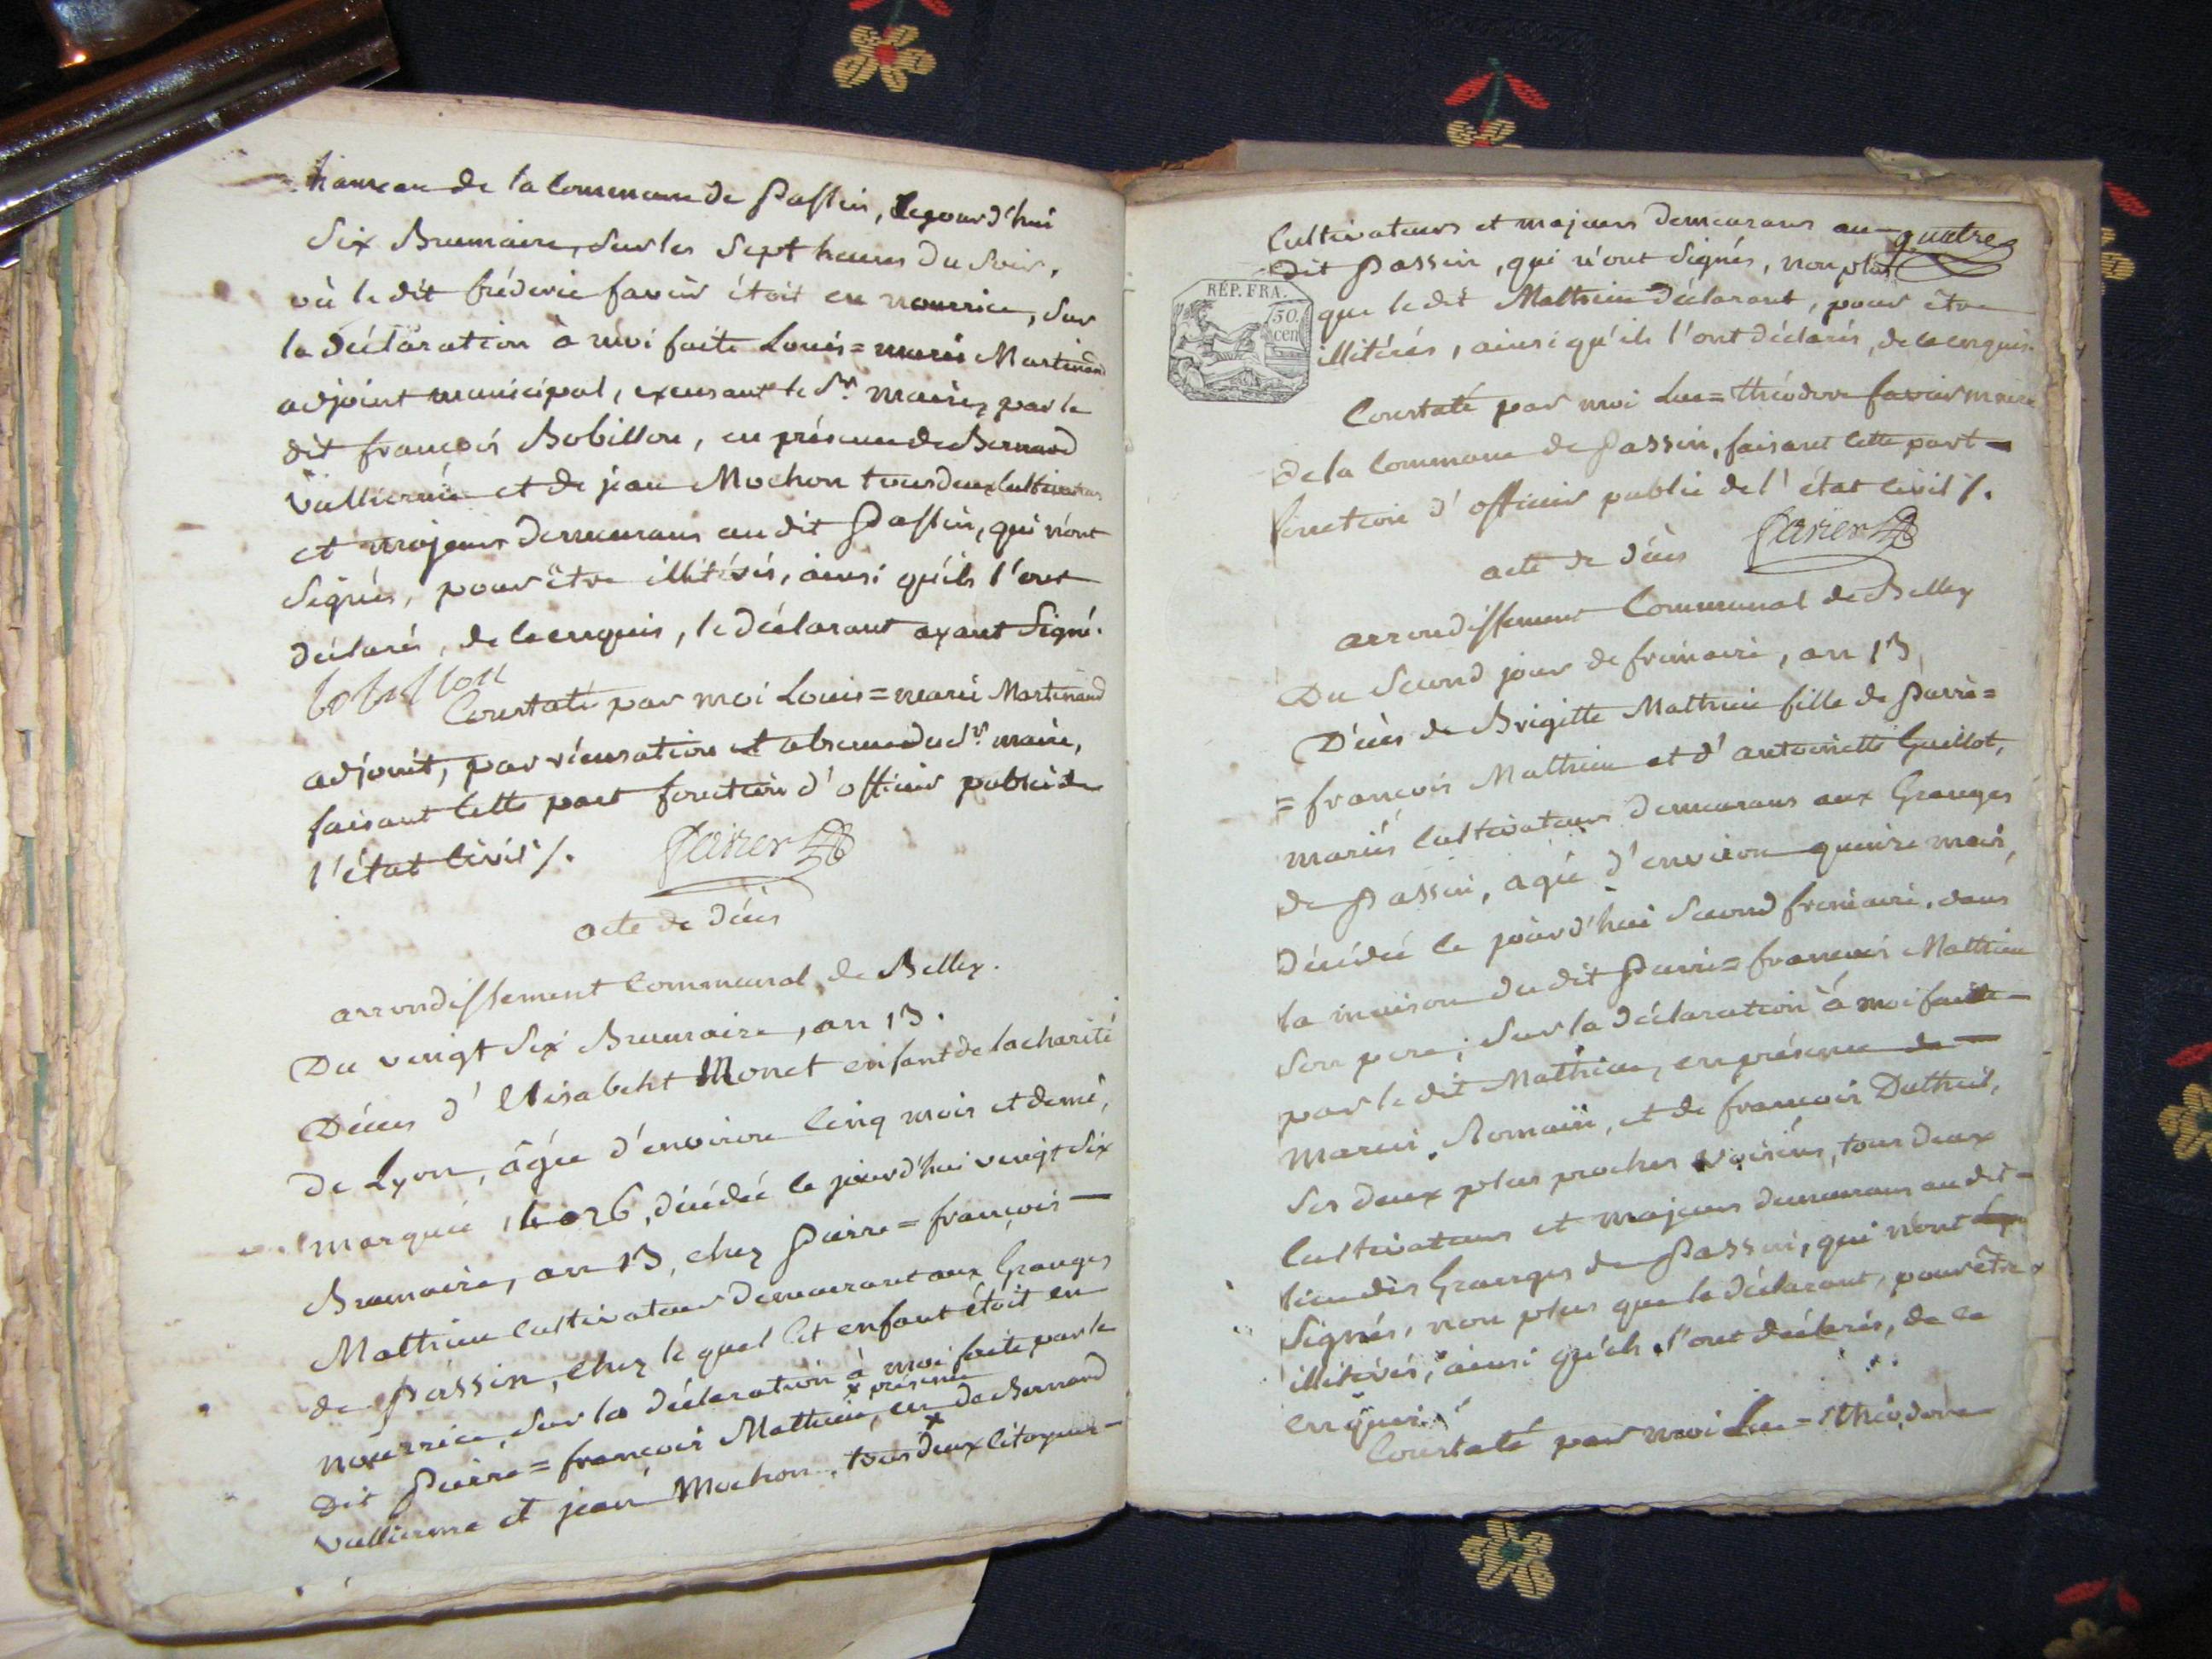 hameau de la Commune de Passin, lejourd'hui
Six Brumaire, Sur les Sept heures du Soir,
où le dit fréderic favier étoit en nourrice, Sur
la déclaration à moi faite Louis=marie Martinand
adjoint municipal, excusant le Sr. Maire, par le
dit françois Bobillon, en présence de Bernard
Vullierme et de jean Mochon tous deux Cultivateurs
et majeurs demeurans au dit Passin, qui n'ont
Signés, pour être illitérés, ainsi qu'ils l'ont
déclarés, de ce enquis, le déclarant ayant Signé.
bobillon
Constaté par moi Louis=marie Martinand
adjoint, par récusation et absence du Sr. maire,
faisant Cette part fonction d'officier public de
l'état Civil /.
favier
acte de décès
arrondissement Communal de Belley.
Du vingt Six Brumaire, an 13.
Décès d'Elisabeht Monet enfant de la charité
de Lyon, âgée d'environ Cinq mois et demi,
marquée décédée le jourd'hui vingt Six
Brumaire, an 13, chez Pierre=françois
Mathieu Cultivateur demeurant aux Granges
de Passin, chez le quel Cet enfant étoit en
nourrice, Sur la déclaration à moi faite par le
x présence
Dit Pierre=françois Mathieu, en x de Bernard
Vullierme et jean Mochon, tous deux Citoyens
quatre
Cultivateurs et majeurs demeurans au
dit Passin, qui n'ont Signés, non plus
RÉP. FRA.
50.
cen
que le dit Mathieu déclarant, pour être
illitérés, ainsi qu'ils l'ont déclarés, de ce enquis.
Constaté par moi Luc=théodore favier maire
de la Commune de Passin, faisant Cette part
fonction d'officier public de l'état Civil /.
favier
acte de décès
arrondissement Communal de Belley
Du Second jour de frimaire, an 13,
Décès de Brigitte Mathieu fille de Pierre=
=françois Mathieu et d'antoinette Guillot,
mariés Cultivateurs demeurans aux Granges
de Passin, agée d'environ quinze mois,
décédée le jourd'hui Second frimaire, dans
la maison du dit Pierre=françois Mathieu
Son pere; Sur la déclaration à moi faite
par le dit Mathieu, en présence de
Marin Romain, et de françois Dutheil,
Ses deux plus proches voisins, tous deux
Cultivateurs et majeurs demeurans au dit
lieu des Granges de Passin, qui n'ont
Signés, non plus que le déclarant, pour être
illitérés, ainsi qu'ils l'ont déclarés, de ce
enquis.
Constaté par moi Luc=théodore